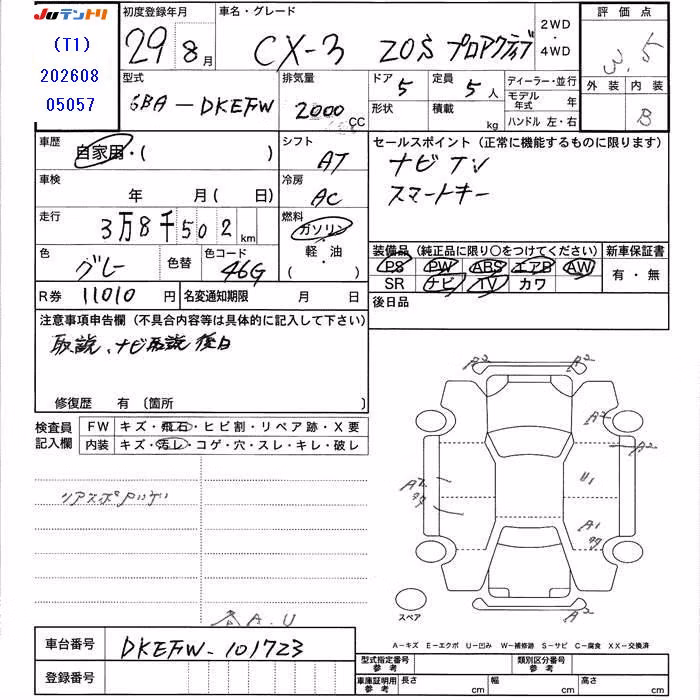 JUテントリ
(T1)
202608
05057
初度登録年月
29 8月
車名・グレード
CX-3 20S プロアクティブ
2WD
・
4WD
評価点
3.5
外装 内装
B
型式
6BA-DKEFW
排気量
2000
CC
ドア 5
形状
定員 5 人
積載 kg
ディーラー・並行
モデル年式 年
ハンドル 左・右
車歴
自家用・( )
シフト
AT
セールスポイント(正常に機能するものに限ります)
ナビ TV
スマートキー
車検
年 月(日)
冷房
AC
走行
3万8千502km
燃料
ガソリン
軽・油
( )
装備品(純正品に限り〇をつけてください)
PS PW ABS エアB AW
SR ナビ TV カワ
新車保証書
有・無
色
グレー
色替
色コード
46G
R券 11010円
名変通知期限 月 日
後日品
注意事項申告欄(不具合内容等は具体的に記入して下さい)
取説、ナビ取説 後日
修復歴 有 〔箇所 〕
検査員
記入欄
FW キズ・飛石・ヒビ割・リペア跡・X要
内装 キズ・汚レ・コゲ・穴・スレ・キレ・破レ
A2
A2
A2
A2
U1
A1
A2
スペア
A.U
A-キズ E-エクボ U-凹み W-補修跡 S-サビ C-腐食 XX-交換済
車台番号
DKEFW-101723
登録番号
型式指定番号
参考
類別区分番号
参考
車庫証明用
参考
長さ cm 幅 cm 高さ cm